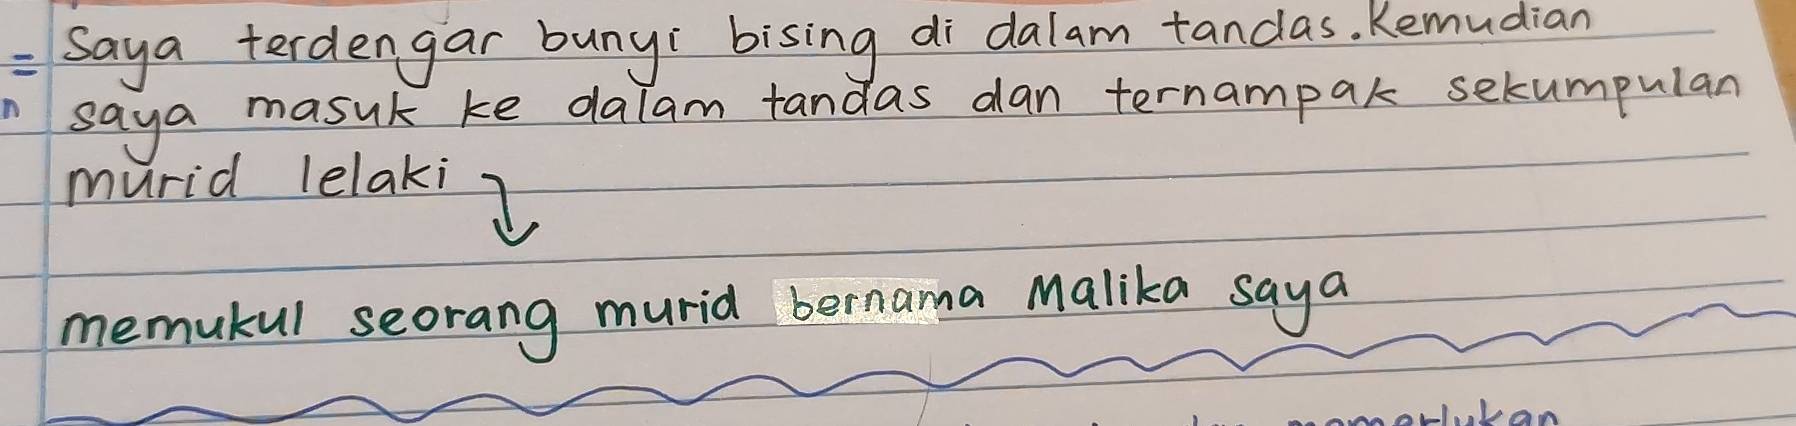 = saya terdengar bunyi bising di dalam tandas. Kemudian
n saya masuk ke dalam tandas dan ternampak sekumpulan
murid lelaki
memukul seorang murid bernama Malika saya
memerlukan